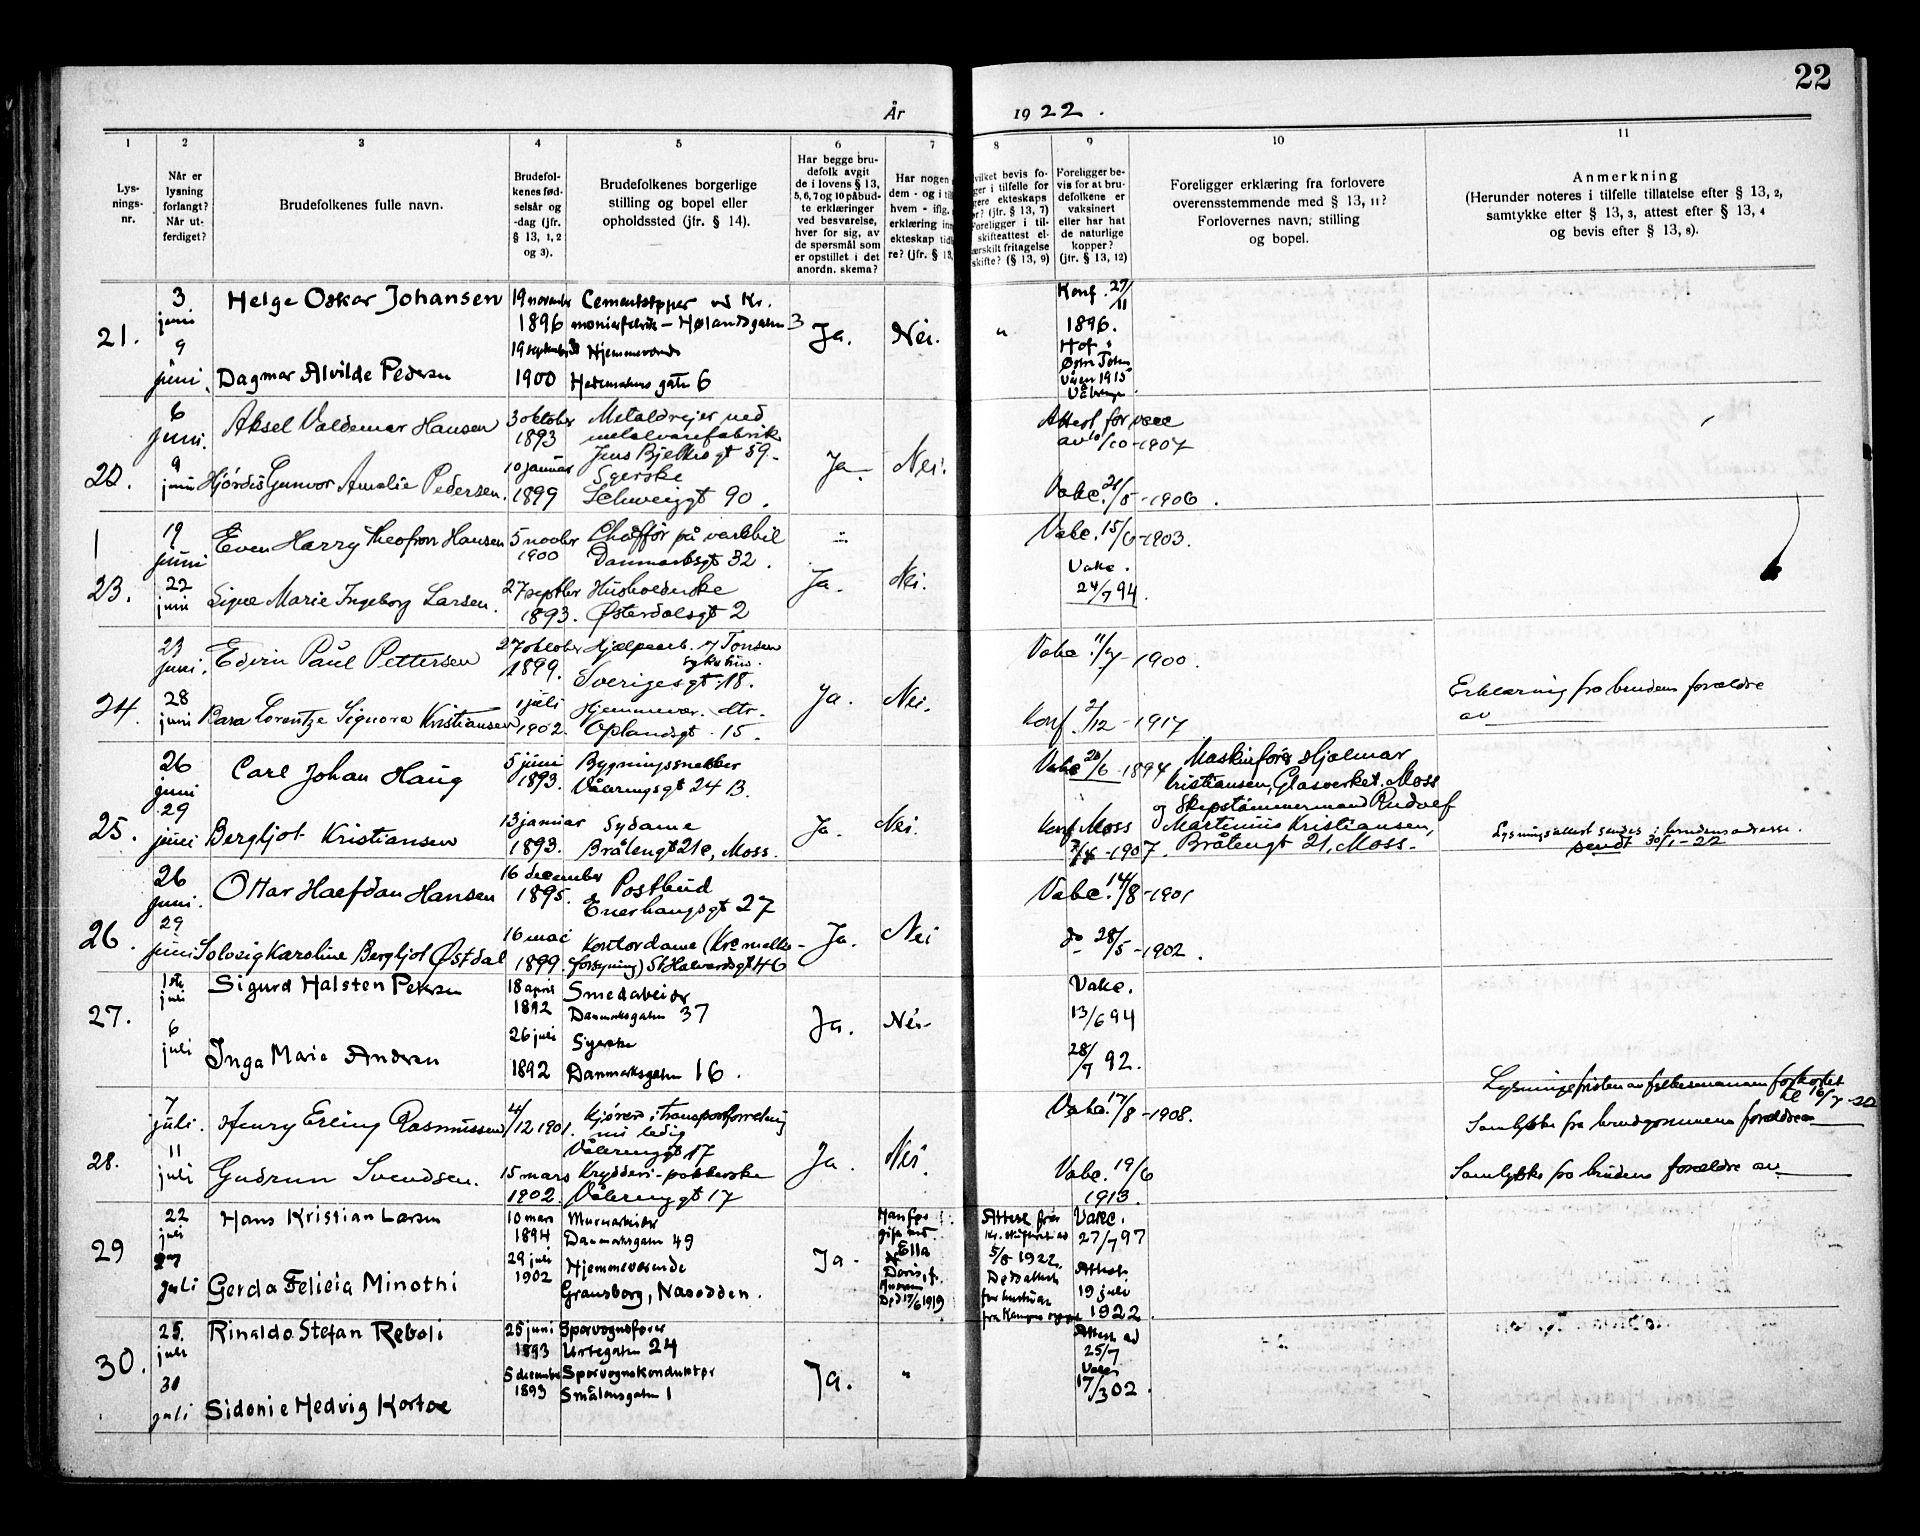 22
År 1922.
1
Lys-
nings-
nr.
2
Når er
lysning
forlangt?
Når ut-
ferdiget?
3
Brudefolkenes fulle navn.
4
Brudefol-
kenes fød-
selsår og
-dag (jfr.
§ 13, 1, 2
og 3).
5
Brudefolkenes borgerlige
stilling og bopel eller
opholdssted (jfr. § 14).
6
Har begge bru-
defolk avgit
de i lovens § 13,
5, 6, 7 og 10 påbud-
te erklæringer
ved besvarelse,
hver for sig, av
de spørsmål som
er opstillet i det
anordn. skema?
7
Har nogen
dem - og i t
hvem - iflg.
erklæring inn
ekteskap tid
re? (jfr. § 13,
8
vilket bevis fo-
ger i tilfelle for
gere ekteskaps
or? (jfr. § 13, 7)
Foreligger i til-
skifteattest el-
ærskilt fritagelse
skifte? (§ 13, 9)
9
Foreligger be-
vis for at bru-
defolkene er
vaksinert
eller har hat
de naturlige
kopper?
(jfr. § 13, 12)
10
Foreligger erklæring fra forlovere
overensstemmende med § 13, 11?
Forlovernes navn, stilling
og bopel.
11
Anmerkning
(Herunder noteres i tilfelle tillatelse efter § 13, 2,
samtykke efter § 13, 3, attest efter § 13, 4
og bevis efter § 13, 8).
21.
3
juni
9
juni
Helge Oskar Johansen
Dagmar Alvilde Pedersen
19 november
1896
19 september
1900
Cementstøper ved Kr.
Hjemmeværende
Hedemarkens gatn 6
Ja.
Nei.
"
Konf. 27/11
1896.
Hof i
1915
6
juni.
9
juni
Aksel Valdemar Hansen
Hjørdis Gunvor Amalie Pedersen.
3 oktober
1893
10 januar
1899
Metaldreier ved
metalvarefabrik
Jens Bjelkes gt 59.
Syerske
Schweiggt 90.
Ja.
Nei.
Attest for vacc
av 10/10-1907
Vakc. 21/5-1906.
23.
19
juni
22
juni
Even Harry Theofron Hansen
Signe Marie Ingeborg Larsen.
5 novbr
1900
27 septbr
1893.
Chaffør på varebil
Danmarksgt 32.
Husholderske
Østerdalsgt 2
Ja.
Nei.
Vakc. 15/6-1903.
Vakc.
24/7 94.
24.
23
juni.
28
juni
Edvin Paul Pettersen
Kara Lorentze Signora Kristiansen
27 oktober
1899.
1 juli
1902.
Hjælpearb. v/ Tonsen
sykehus.
Sverigesgt. 18.
Hjemmevær. dtr.
Oplandsgt. 15.
Ja.
Nei.
Vakc. 11/7-1900.
Konf. 2/12-1917
Erklæring fra brudens forældre
av
25.
26
juni
29
juni
Carl Johan Haug
Bergljot Kristiansen
5 juni
1893.
13 januar
1893.
Bygningssnekker
Våleringsgt 24 B.
Sydame
Bråtengt 21c, Moss.
Ja.
Nei.
Vakc 20/6-1894
Konf Moss
-1907.
Maskinfører Hjalmar
Kristiansen, Glasverket, Moss
og Skipstømmermand Rudolf
Martinius Kristiansen,
Bråtengt 21, Moss.
Lysningsattest sendes i brudens adresse.
sendt 30/1-22
26.
26
juni.
29
juni
Ottar Halfdan Hansen
Solveig Karoline Bergljot Østdal
16 december
1895.
16 mai
1899.
Postbud
Enerhaugsgt 27
Kontordame (Kra melke-
forsyning) St Halvardsgt 46
Ja.
Nei
Vakc. 14/8-1901
do 28/5-1902.
27.
1ste
juli
6
juli
Sigurd Halsten Petersen
Inga Marie Andresen
18 april
1892
26 juli
1892
Smedarbeider
Danmarksgaten 37
Syerske
Danmarksgaten 16.
Ja.
Nei-
Vakc.
13/6 94
28/7 92.
28.
7
juli.
11
juli
Henry Erling Rasmussen
Gudrun Svendsen.
4/12 1901.
15 mars
1902.
Kjører i transportforretning
nu ledig
Våleringgt 17
Krydderi-pakkerske
Våleringgt 17
Ja.
Nei.
Vakc. 17/8-1908.
Vakc. 19/6
1913.
Lysningsfristen av fylkesmannen forkortet
til 16/7-22
Samtykke fra brudgommens forældre
Samtykke fra brudens forældre av
29
22
juli
juli
Hans Kristian Larsen
Gerda Felicia Minothi
10 mars
1894
29 juli
1902
Murarbeider
Danmarksgaten 49
Hjemmeværende
Gransborg, Nasodden.
Ja.
Ella
Død 17/6 1919
Attest fra
5/8 1922.
Vakc.
27/7 97
Attest.
19 juli
1922.
30.
25.
juli
30
juli
Rinaldo Stefan Reboli
Sidonie Hedvig Kortoe
25 juni
1893
5 december
1893
Sporvognsfører
Urtegaten 24
Sporvognskonduktør
Smålensgaten 1
Ja.
"
Attest ad
25/7
Vakc
17/3 02.